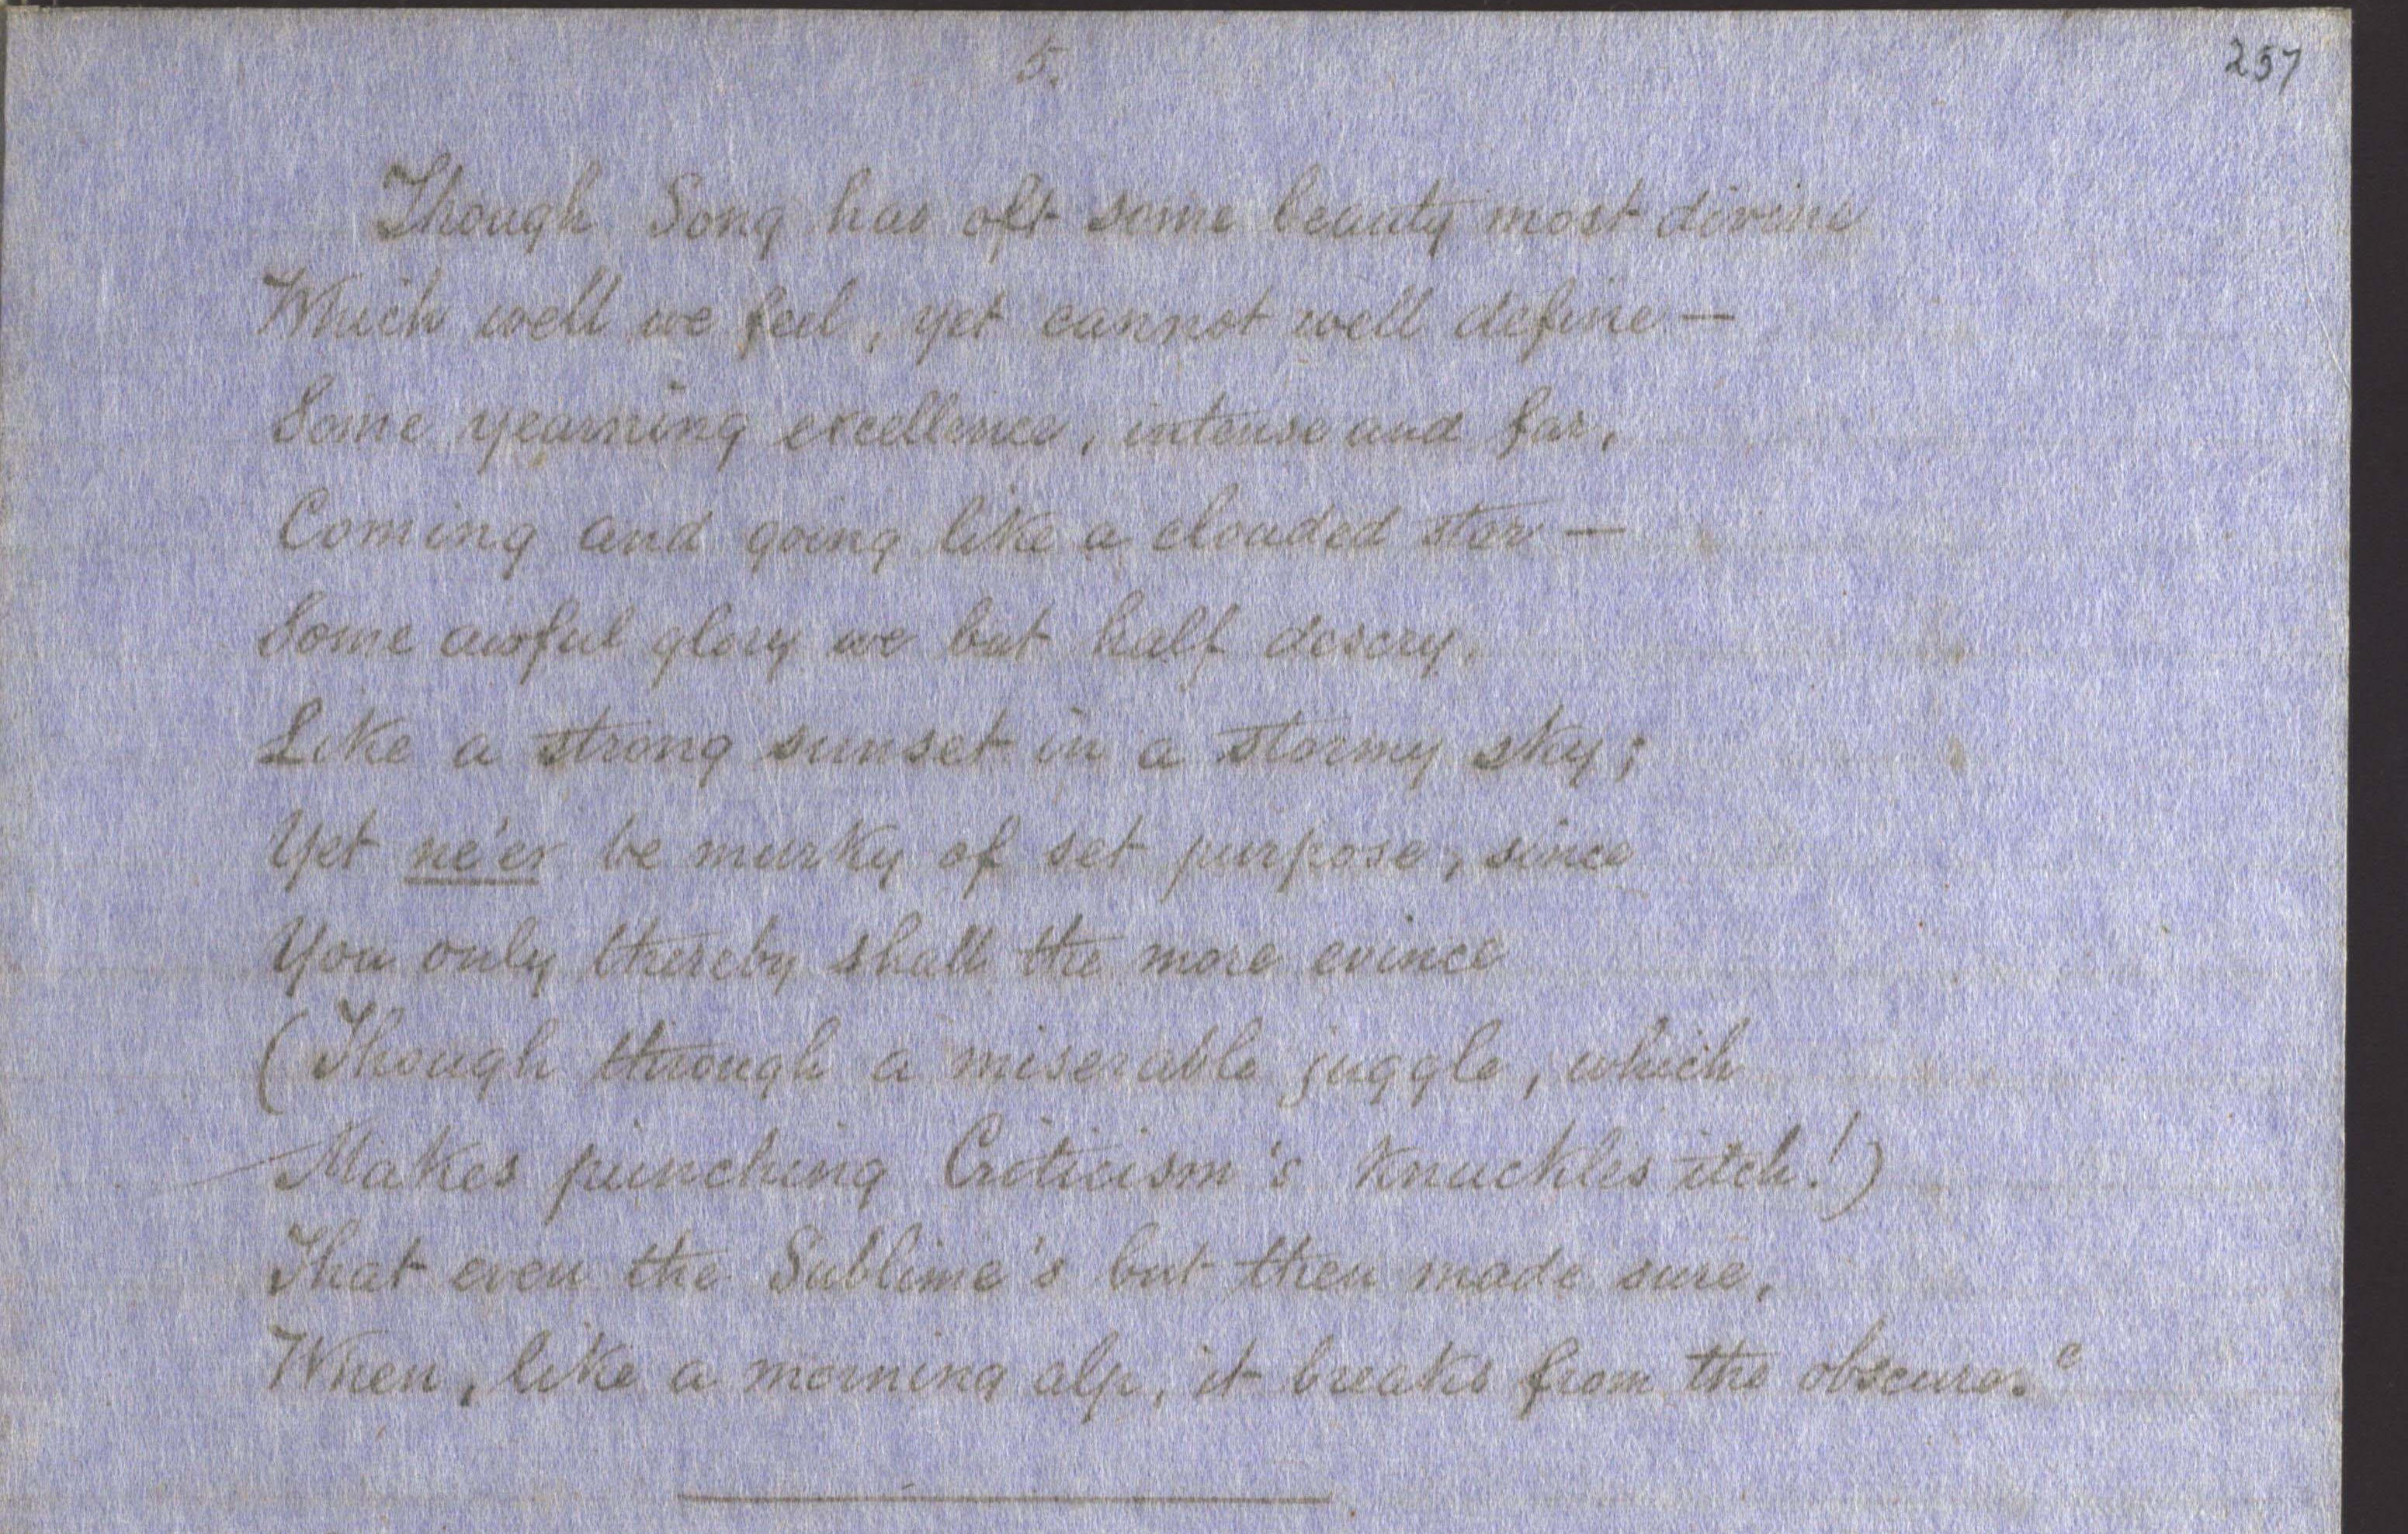 5.
257
Though Song has oft some beauty most divine
Which well we feel, yet cannot well define —
Some yearning excellence, intense and far,
Coming and going like a clouded star —
Some awful glory we but half descry,
Like a strong sunset in a stormy sky;
Yet ne'er be murky of set purpose, since
You only thereby shall the more evince
(Though through a miserable juggle, which
Makes punching Criticism's knuckles itch!)
That even the Sublime's but then made sure,
When, like a morning alp, it breaks from the obscure. c